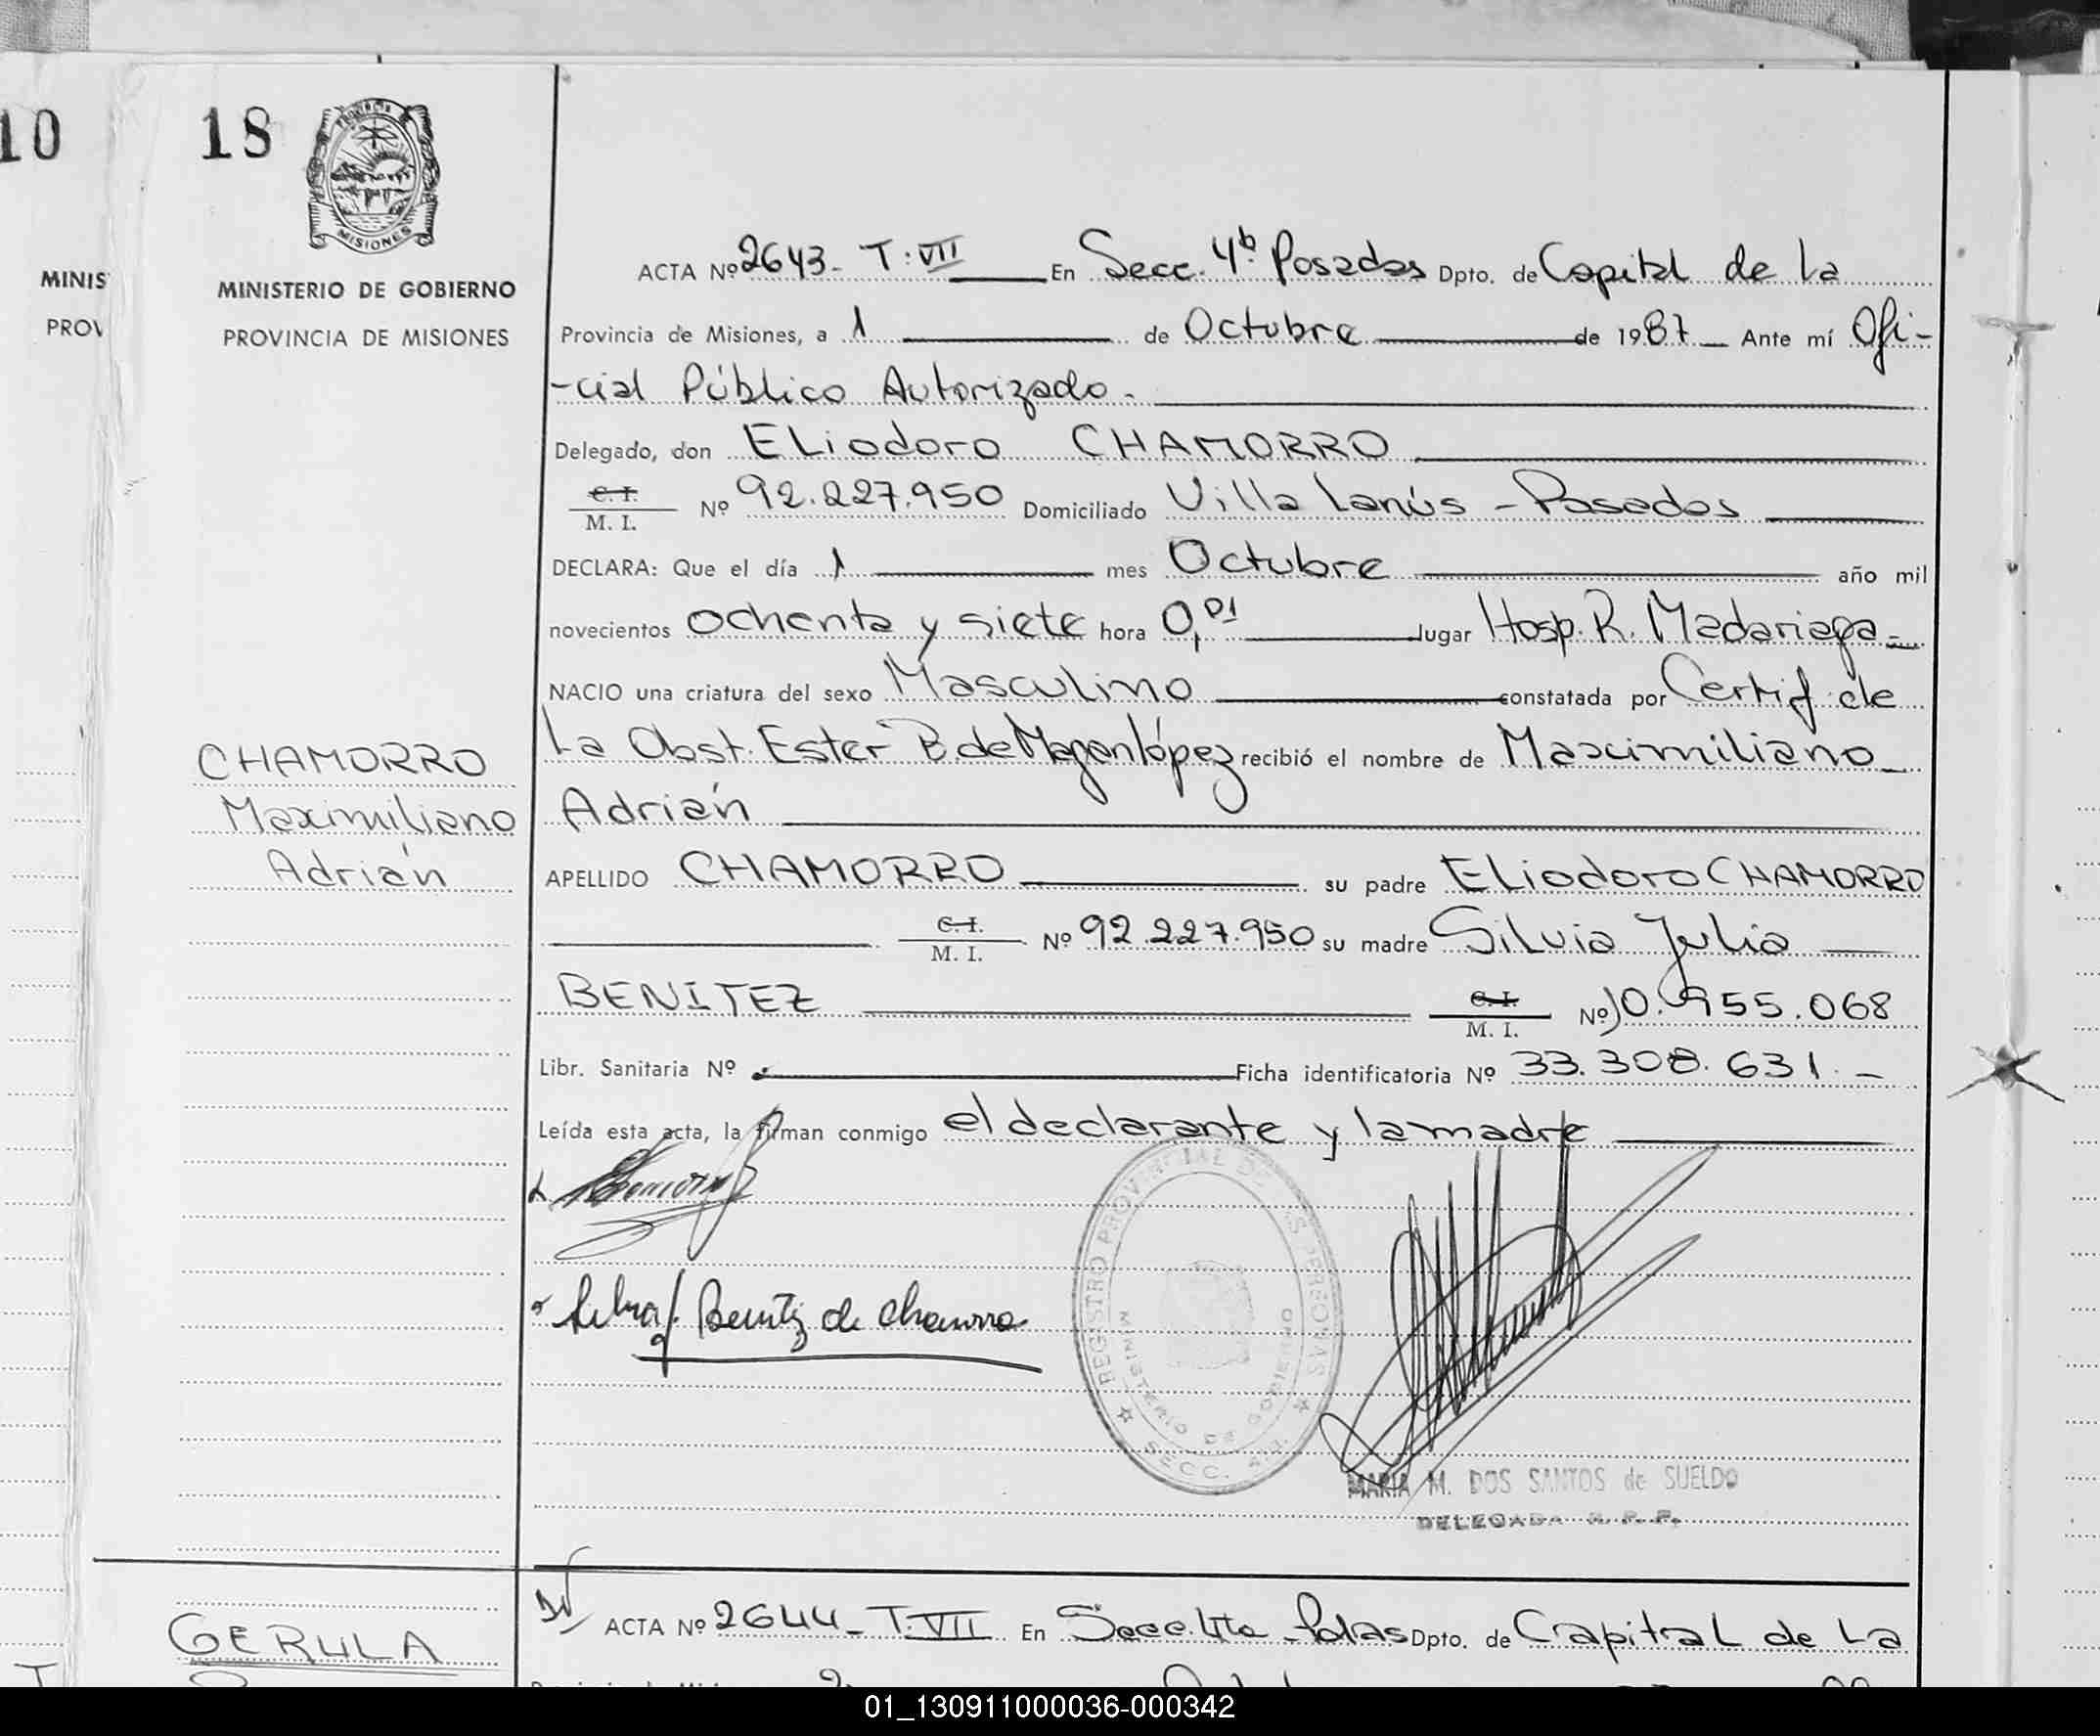 10
18
MISIONES
MINIS
MINISTERIO DE GOBIERNO
PROV
PROVINCIA DE MISIONES
ACTA Nº 2643- T: VII En Secc. 4ª Posadas Dpto. de Capital de La
Provincia de Misiones, a 1 de Octubre de 1987 Ante mí Ofi-
-cial Público Autorizado.
Delegado, don ELiodoro CHAMORRO
C. I.
M. I. Nº 92.227.950 Domiciliado Villa Lanús - Posadas
DECLARA: Que el día 1 mes Octubre año mil
novecientos ochenta y siete hora 0,01 lugar Hosp. R. Madariaga
NACIO una criatura del sexo Masculino constatada por Certif de
La Obst. Ester B. de recibió el nombre de Maximiliano
Adrián
CHAMORRO
Maximiliano
Adrián
APELLIDO CHAMORRO su padre ELiodoro CHAMORRO
C. I.
M. I. Nº 92.227.950 su madre Silvia Julia
BENITEZ C. I.
M. I. Nº 10.955.068
Libr. Sanitaria Nº Ficha identificatoria Nº 33.308.631.-
Leída esta acta, la firman conmigo el declarante y la madre
Benítez de Chamorro
REGISTRO PROVINCIAL DE LAS PERSONAS
MINISTERIO DE GOBIERNO
SECC. 4ta.
MARIA M. DOS SANTOS de SUELDO
DELEGADA R. P. P.
GERULA
ACTA Nº 2644- T. VII En Secc. 4ta Pdas Dpto. de Capital de La
01_130911000036-000342